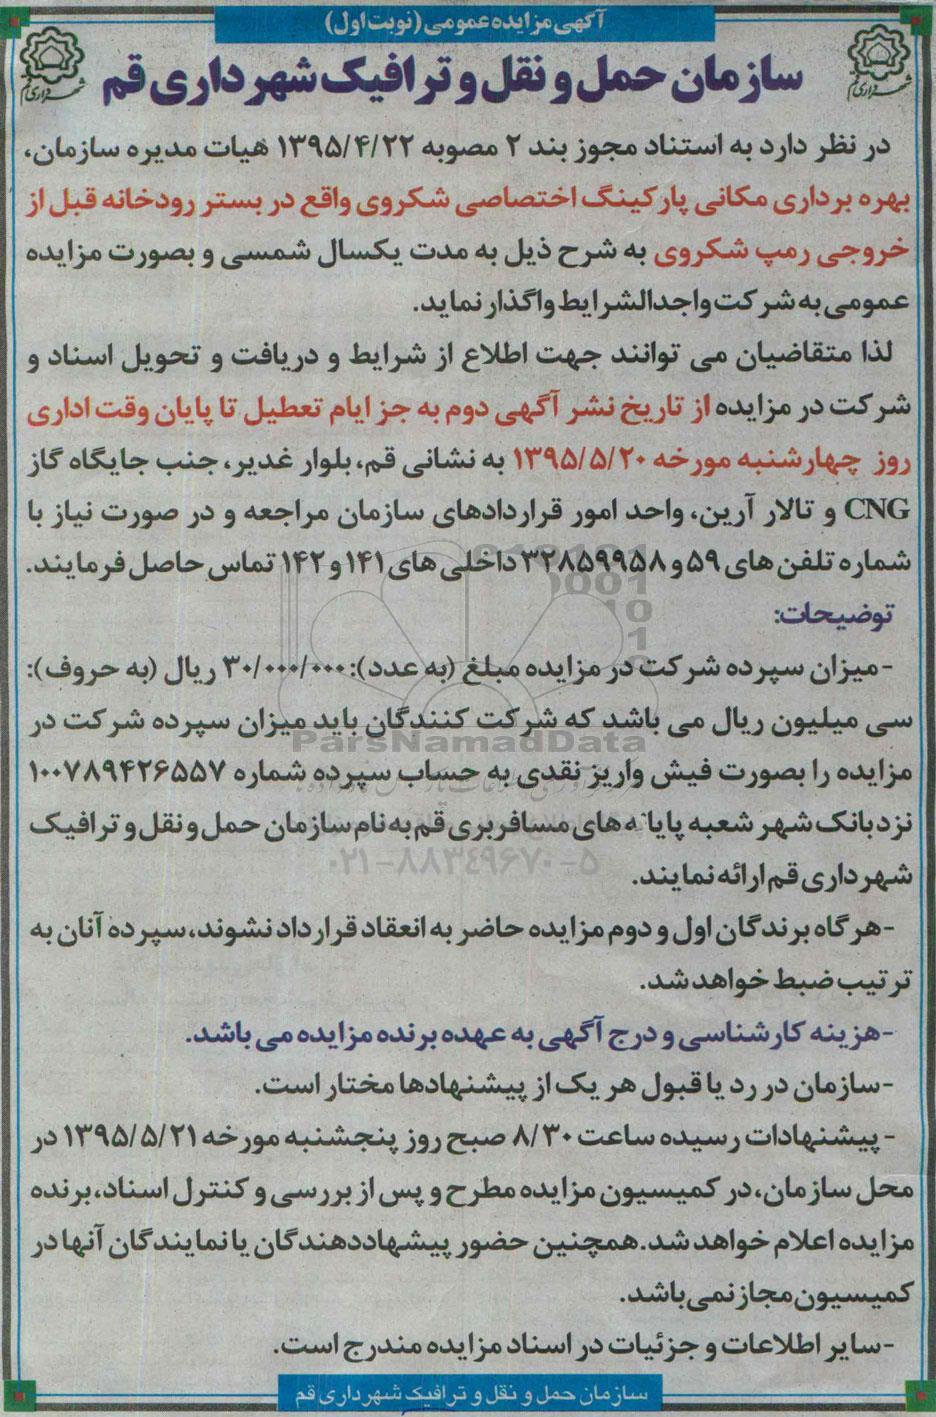 آگهی مزایده عمومی (نوبت اول)
سازمان حمل و نقل و ترافیک شهرداری قم
شهرداری قم
شهرداری قم
در نظر دارد به استناد مجوز بند ۲ مصوبه ۱۳۹۵/۴/۲۲ هیات مدیره سازمان،
بهره برداری مکانی پارکینگ اختصاصی شکروی واقع در بستر رودخانه قبل از
خروجی رمپ شکروی به شرح ذیل به مدت یکسال شمسی و بصورت مزایده
عمومی به شرکت واجدالشرایط واگذار نماید.
لذا متقاضیان می توانند جهت اطلاع از شرایط و دریافت و تحویل اسناد و
شرکت در مزایده از تاریخ نشر آگهی دوم به جز ایام تعطیل تا پایان وقت اداری
روز چهارشنبه مورخه ۱۳۹۵/۵/۲۰ به نشانی قم، بلوار غدیر، جنب جایگاه گاز
CNG و تالار آرین، واحد امور قراردادهای سازمان مراجعه و در صورت نیاز با
شماره تلفن های ۵۹ و ۳۲۸۵۹۹۵۸ داخلی های ۱۴۱ و ۱۴۲ تماس حاصل فرمایند.
توضیحات:
-میزان سپرده شرکت در مزایده مبلغ (به عدد): ۳۰/۰۰۰/۰۰۰ ریال (به حروف):
سی میلیون ریال می باشد که شرکت کنندگان باید میزان سپرده شرکت در
ParsNamadData
مزایده را بصورت فیش واریز نقدی به حساب سپرده شماره ۱۰۰۷۸۹۴۲۶۵۵۷
نزد بانک شهر شعبه پایانه های مسافربری قم به نام سازمان حمل و نقل و ترافیک
۰۲۱-۸۸۳۴۹۶۷۰-۵
شهرداری قم ارائه نمایند.
-هرگاه برندگان اول و دوم مزایده حاضر به انعقاد قرارداد نشوند، سپرده آنان به
ترتیب ضبط خواهد شد.
-هزینه کارشناسی و درج آگهی به عهده برنده مزایده می باشد.
-سازمان در رد یا قبول هر یک از پیشنهادها مختار است.
- پیشنهادات رسیده ساعت ۸/۳۰ صبح روز پنجشنبه مورخه ۱۳۹۵/۵/۲۱ در
محل سازمان، در کمیسیون مزایده مطرح و پس از بررسی و کنترل اسناد، برنده
مزایده اعلام خواهد شد. همچنین حضور پیشهاددهندگان یا نمایندگان آنها در
کمیسیون مجاز نمی باشد.
-سایر اطلاعات و جزئیات در اسناد مزایده مندرج است.
سازمان حمل و نقل و ترافیک شهرداری قم